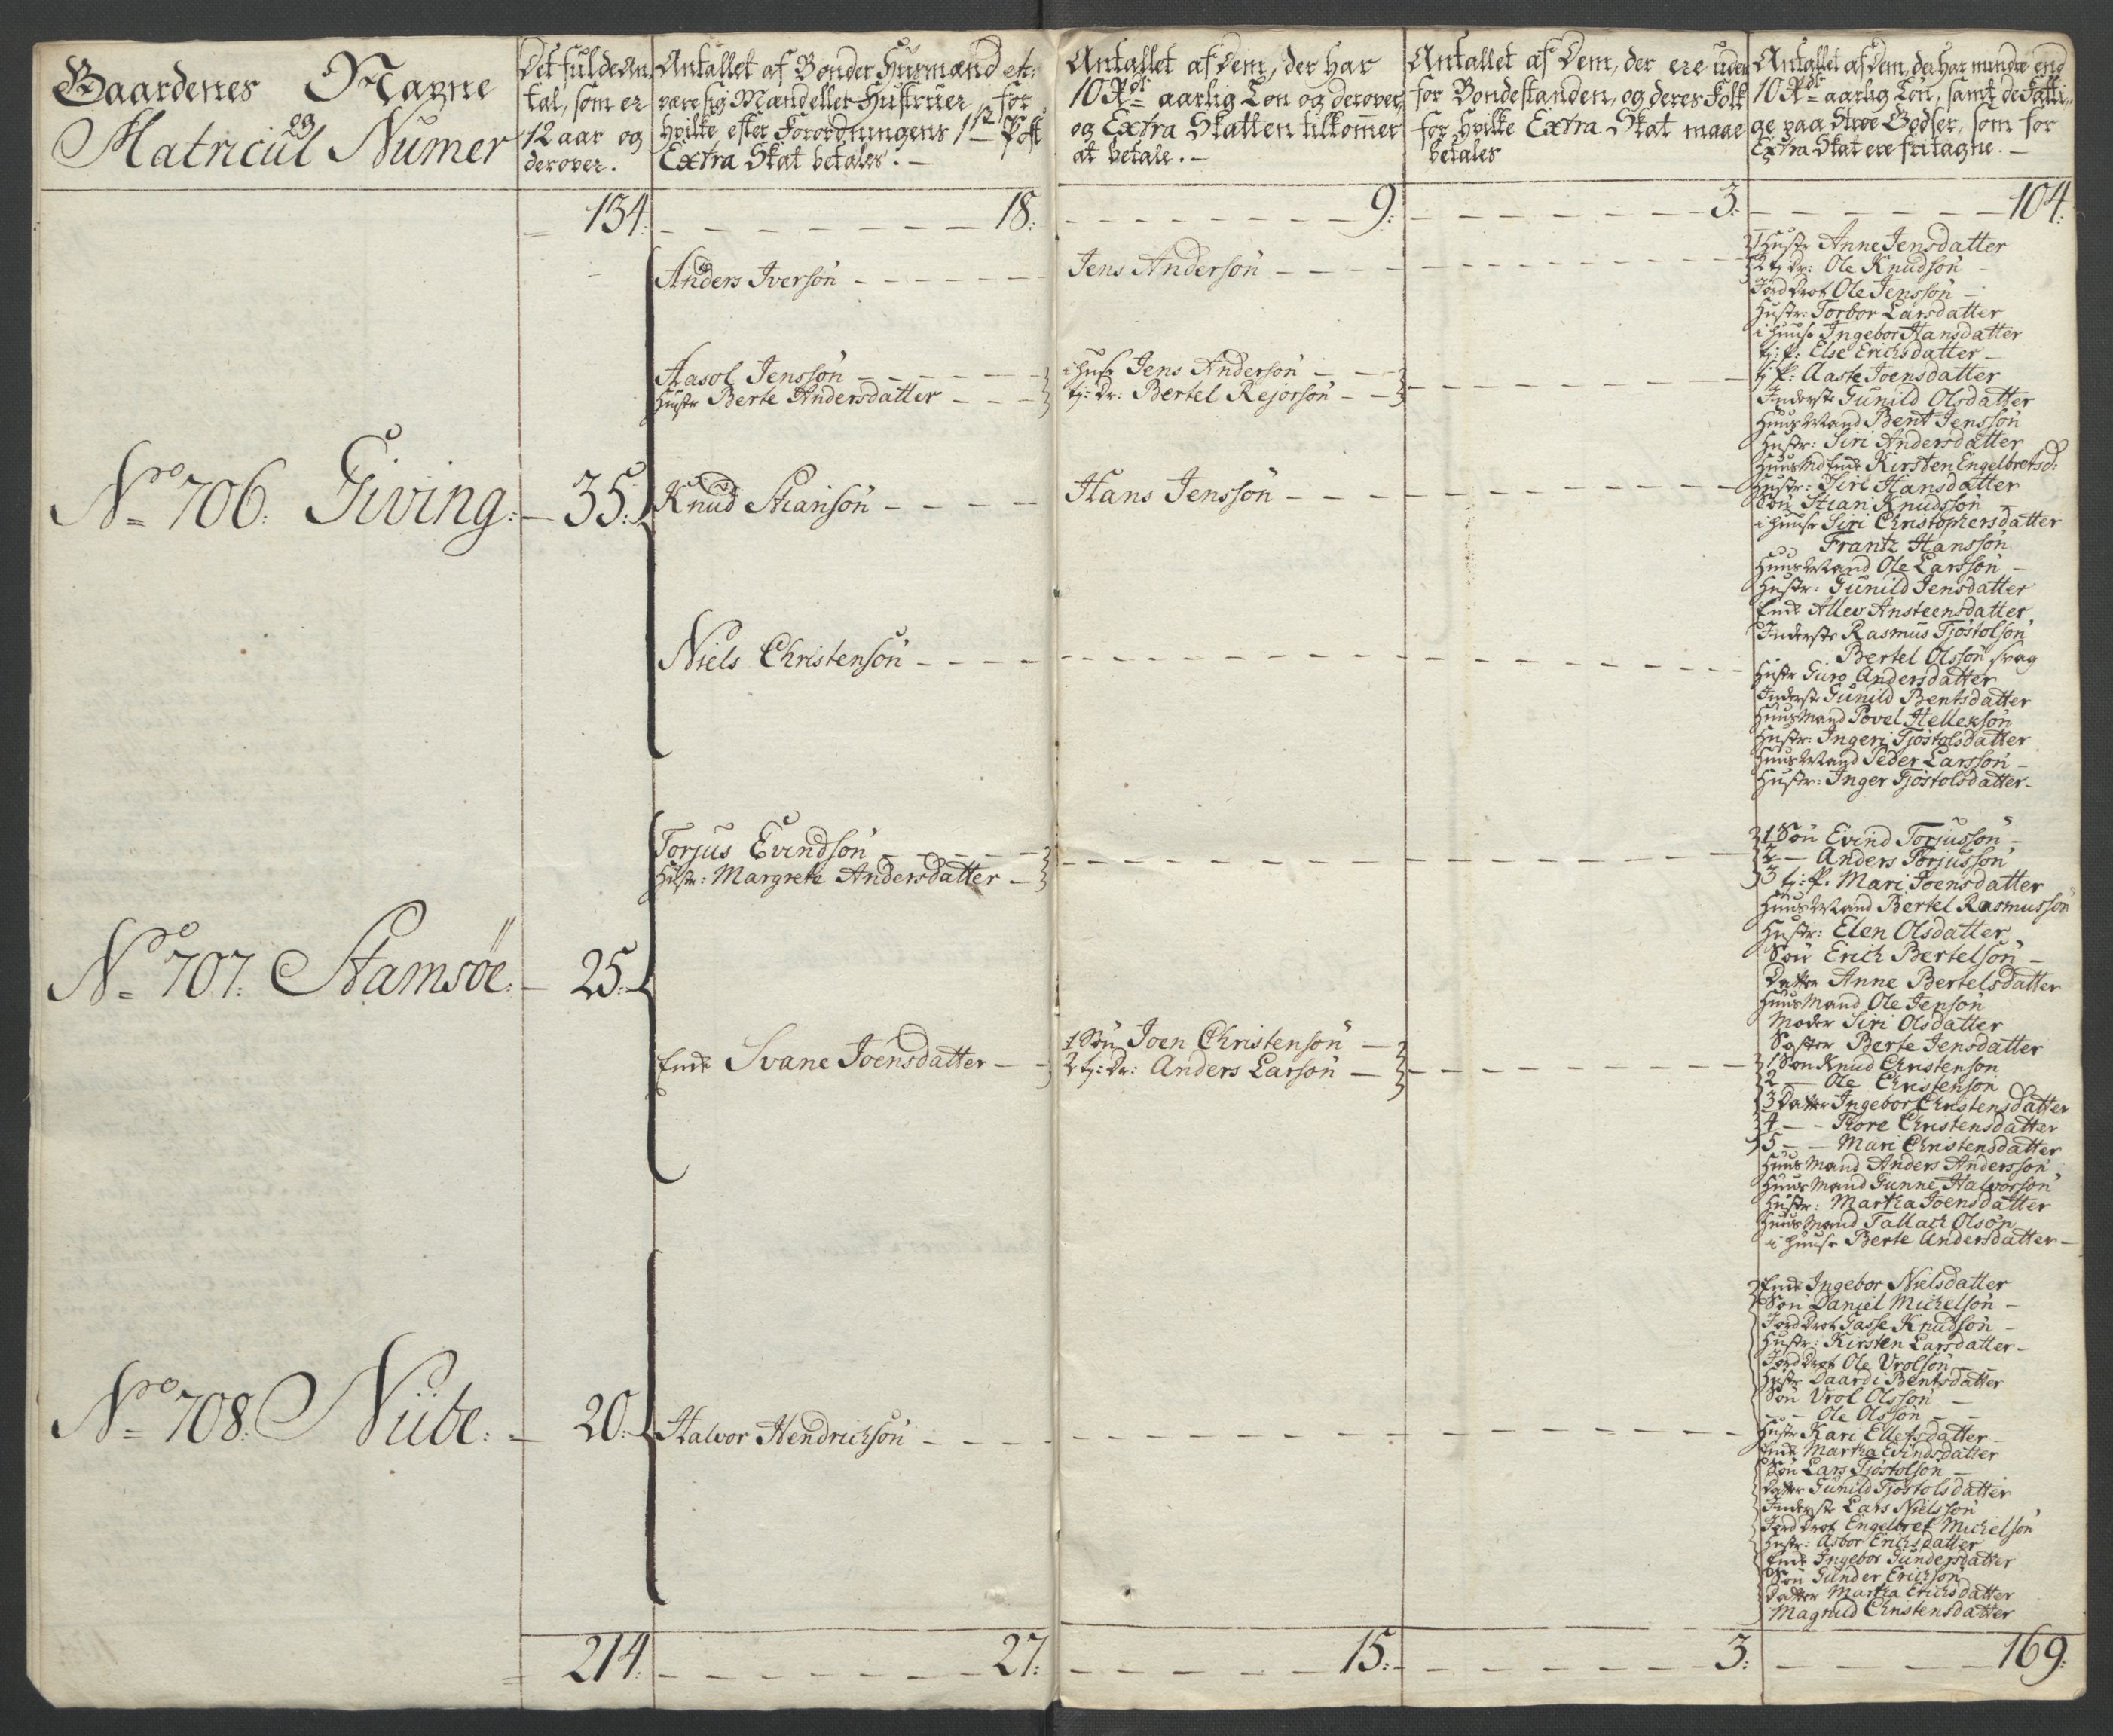 Gaardenes Nagne
og
Matricul Numer
Det fulde An
tal, som er
12 aar og
derover.
Antallet af Bønder Husmænd etc:
være sig Mænd eller Hustruer for
hvilke efter Forordningens 1ste Post
Extra Skat betales. —
Antallet af Dem, der har
10 Rdr aarlig Løn og derover,
og Extra Skatten tilkommer
at betale. —
Antallet af Dem, der ere uden
for Bondestanden, og deres Folk
for hvilke Extra Skat maae
betales
Antallet af Dem, der har mindre end
10 Rdr aarlig Løn, samt de Fatti-
ge paa Støe Godser, som for
Extra Skat ere fritagne. —
134.
18.
9.
3.
104.
No 706. Giving. 35.
Anders Iversøn
Aasol Jensøn
Hustr Berte Andersdatter
Knud Stiansøn
Niels Christensøn
Jens Andersøn
i huse Jens Andersøn
tj: Dr: Bertel Rejorsøn
Hans Jenssøn
1 Hustr Anne Jensdatter
2 tj: Dr: Ole Knudsøn
Jord Drot Ole Jenssøn
Hustr: Torbor Larsdatter
i huuse Ingebor Hansdatter
tj: P: Else Erichsdatter
tj P: Aaste Joensdatter
Inderste Gunild Olsdatter
Huus Mand Bent Jenssøn
Hustr: Siri Andersdatter
Huus Md Enke Kirsten Engelbretsd:
Hustr: Siri Hansdatter
Søn Stian Knudssøn
i huuse Siri Christophersdatter
Frantz Hanssøn
Huus Mand Ole Larssøn
Hustr: Gunild Jensdatter
Enke Allev Ansteensdatter
Inderste Rasmus Tjøstolsøn
Bertel Olssøn svag
Hustr Guro Andersdatter
Inderste Gunild Bentsdatter
Huus Mand Povel Hellessøn
Hustr: Ingeri Tjøstolsdatter
Huus Mand Peder Larssøn
Hustr: Inger Tjøstolsdatter
No 707. Stamsøe. 25.
Torjus Evindsøn
Hustr: Margrete Andersdatter
Enke Svane Joensdatter
1 Søn Joen Christensøn
2 tj: Dr: Anders Larsøn
1 Søn Evind Torjussøn
2 — Anders Torjussøn
3 tj: P. Mari Joensdatter
Huus Mand Bertel Rasmussøn
Hustr: Elen Olsdatter
Søn Erich Bertelsøn
Datter Anne Bertelsdatter
Huus Mand Ole Jensøn
Moder Siri Olsdatter
Søster Berte Jensdatter
1 Søn Knud Christensøn
2 — Ole Christensøn
3 Datter Ingebor Christensdatter
4 — Tore Christensdatter
5 — Mari Christensdatter
Huus Mand Anders Anderssøn
Huus Mand Gunne Halvorsøn
Hustr: Martha Joensdatter
Huus Mand Tallach Olsøn
i huuse Berte Andersdatter
No 708. Niibe. 20.
Halvor Hendrichsøn
Enke Ingebor Nielsdatter
Søn Daniel Michelsøn
Jord Drot Gasse Knudsøn
Hustr: Kirsten Larsdatter
Jord Drot Ole Vrolsøn
Hustr Daardi Bentsdatter
Søn Vrol Olssøn
— Ole Olssøn
Hustr Kari Ellefsdatter
Enke Martha Evindsdatter
Søn Lars Tjøstolsøn
Datter Gunild Tjøstolsdatter
Inderste Lars Nielssøn
Jord Drot Engelbret Michelsøn
Hustr: Asbor Erichsdatter
Enke Ingebor Gundersdatter
Søn Gunder Erichsøn
Datter Martha Erichsdatter
Magnild Christensdatter
214.
27.
15.
3.
169.